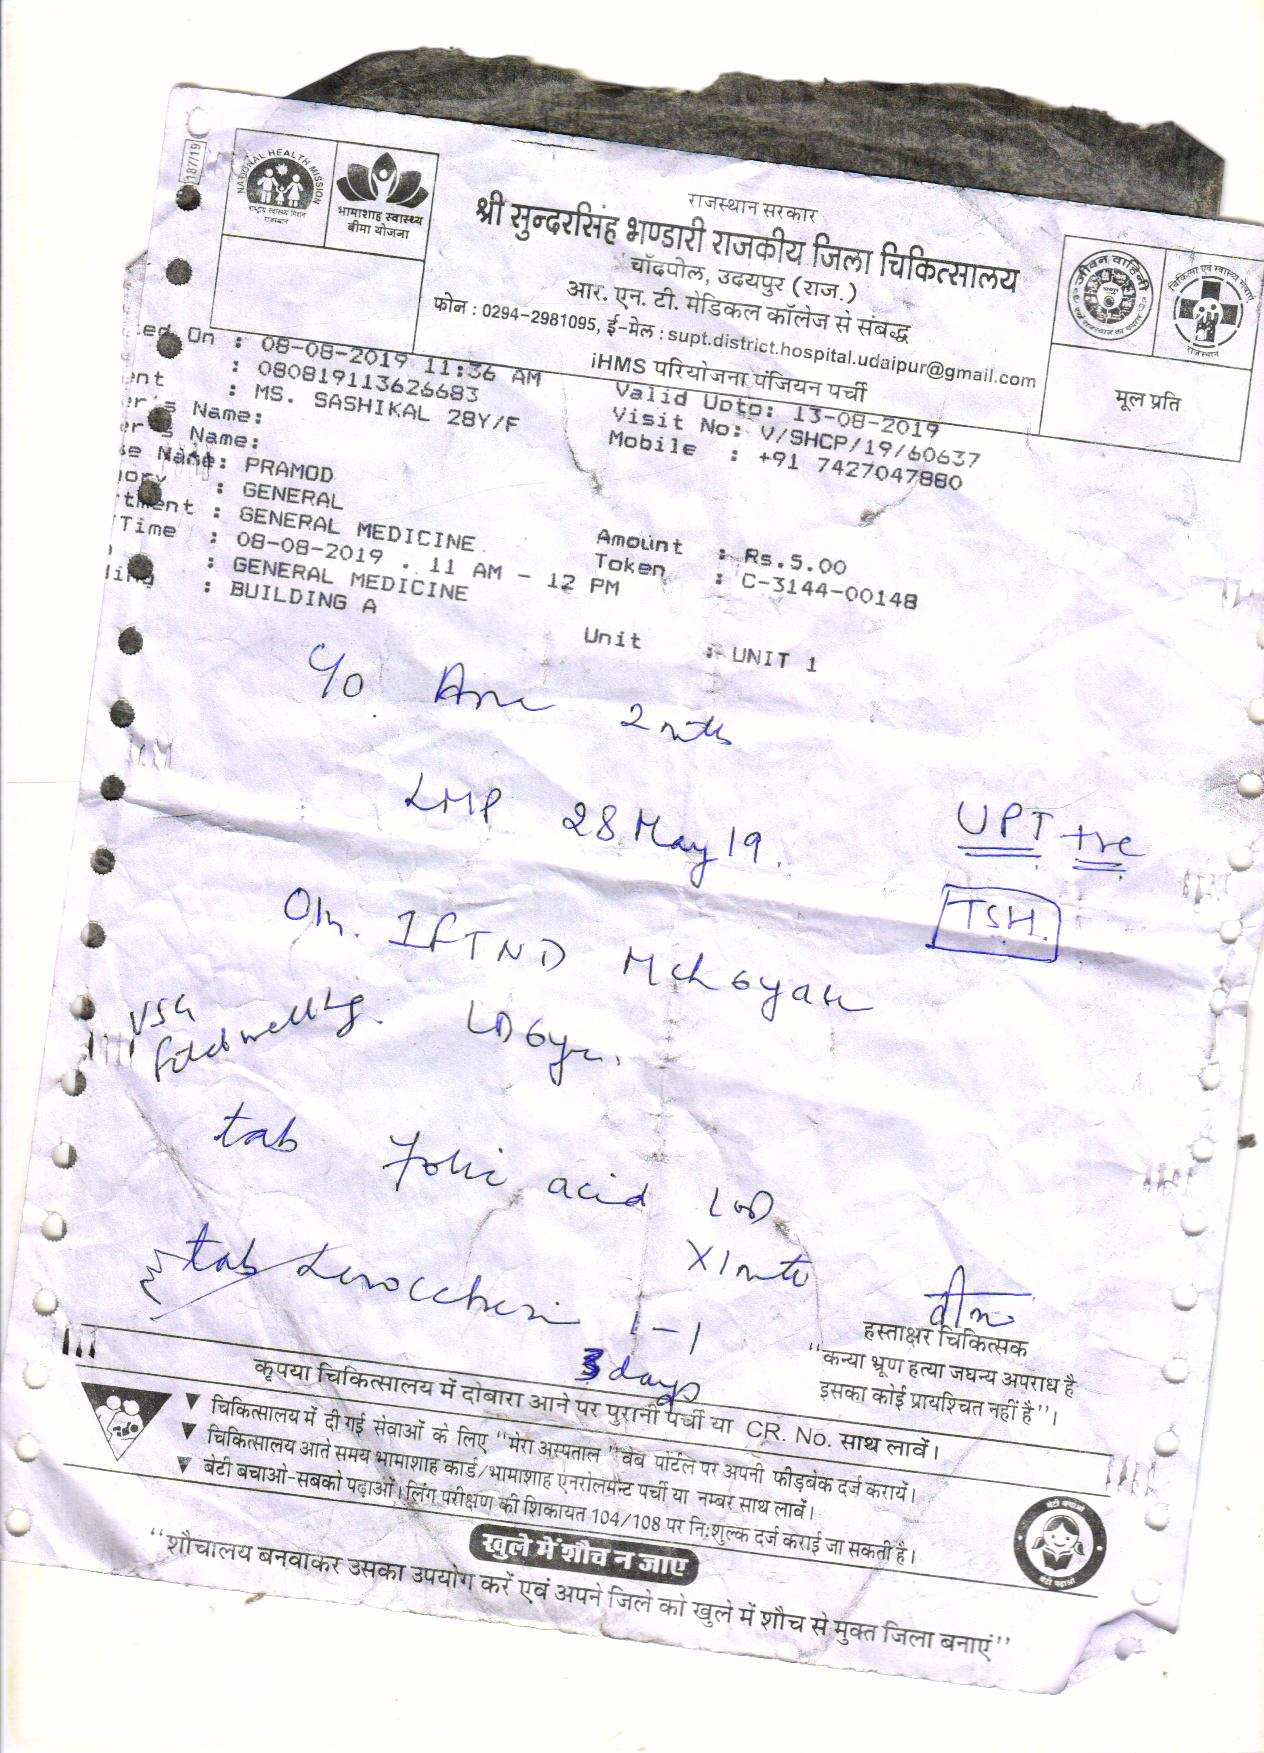 187/19
NATIONAL HEALTH MISSION
राष्ट्रीय स्वास्थ्य मिशन
भामाशाह स्वास्थ्य
बीमा योजना
राजस्थान सरकार
श्री सुन्दरसिंह भण्डारी राजकीय जिला चिकित्सालय
चाँदपोल, उदयपुर (राज.)
आर. एन. टी. मेडिकल कॉलेज से संबद्ध
फोन : 0294-2981095, ई-मेल : supt.district.hospital.udaipur@gmail.com
iHMS परियोजना पंजियन पर्ची
जीवन वाहिनी
चिकित्सा एवं स्वास्थ्य सेवाएं
राजस्थान
मूल प्रति
ed On : 08-08-2019 11:36 AM Valid Upto: 13-08-2019
: 080819113626683 Visit No: V/SHCP/19/60637
ent : MS. SASHIKAL 28Y/F Mobile : +91 7427047880
er's Name:
er's Name:
se Name: PRAMOD
ory : GENERAL
tment : GENERAL MEDICINE Amount : Rs.5.00
Time : 08-08-2019 . 11 AM - 12 PM Token : C-3144-00148
: GENERAL MEDICINE
ding : BUILDING A Unit : UNIT 1
C/O 2 mths
LMP 28 May 19. UPT +ve
TSH.
IFTND Mch 6 year
USG LD 6yr.
tab folic acid 1 OD
X1mth
tab 1-1
3 days
हस्ताक्षर चिकित्सक
"कन्या भ्रूण हत्या जघन्य अपराध है
इसका कोई प्रायश्चित नहीं है"।
कृपया चिकित्सालय में दोबारा आने पर पुरानी पर्ची या CR. No. साथ लावें।
▼ चिकित्सालय में दी गई सेवाओं के लिए "मेरा अस्पताल" वेब पोर्टल पर अपनी फीडबेक दर्ज करायें।
▼ चिकित्सालय आते समय भामाशाह कार्ड/भामाशाह एनरोलमेन्ट पर्ची या नम्बर साथ लावें।
▼ बेटी बचाओ-सबको पढ़ाओ। लिंग परीक्षण की शिकायत 104/108 पर नि:शुल्क दर्ज कराई जा सकती है।
बेटी बचाओ
बेटी पढ़ाओ
खुले में शौच न जाए
"शौचालय बनवाकर उसका उपयोग करें एवं अपने जिले को खुले में शौच से मुक्त जिला बनाएं"